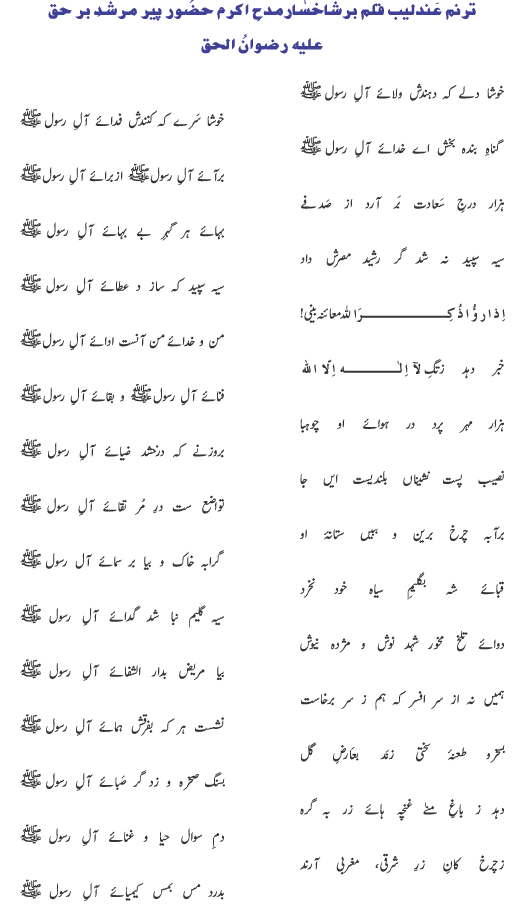 ترنم عندلیب قلم بر شاخسار مدح اکرم حضور پیر مرشد بر حق
علیہ رضوانُ الحق
خوشا دلے کہ دہندش ولائے آلِ رسول ﷺ
خوشا سَرے کہ کنندش فدائے آلِ رسول ﷺ
گناہِ بندہ بخش اے خدائے آلِ رسول ﷺ
برآئے آلِ رسول ﷺ ازبرائے آلِ رسول ﷺ
ہزار درجِ سَعادت بَر آرد از صَدفے
بہائے ہر گہرِ بے بہائے آلِ رسول ﷺ
سیہ سپید نہ شد گر رشید مصرش داد
سیہ سپید کہ ساز د عطائے آلِ رسول ﷺ
اِذا رؤُا ذُکِرَ اللہ معائنہ بینی!
من و خدائے من آنست ادائے آلِ رسول ﷺ
خبر دہد زتگِ لآ اِلٰہ اِلّا اللہ
فنائے آلِ رسول ﷺ و بقائے آلِ رسول ﷺ
ہزار مہر پرد در ہوائے او چوہبا
بروزنے کہ درخشد ضیائے آلِ رسول ﷺ
نصیب پست نشیناں بلندیست ایں جا
تواضع ست درِ مُر تقائے آلِ رسول ﷺ
برآبہ چرخِ برین و ببیں ستانۂ او
گرابہ خاک و بیا بر سمائے آل رسول ﷺ
قبائے شہ بگلیمِ سیاہ خود نخرد
سیہ گلیم نبا شد گدائے آلِ رسول ﷺ
دوائے تلخ مخور شہد نوش و مژدہ نیوش
بیا مریض بدار الشفائے آلِ رسول ﷺ
ہمیں نہ از سر افسر کہ ہم ز سر برخاست
نشست ہر کہ بفرقش ہمائے آلِ رسول ﷺ
بسخرو طعنۂ سختی زند بعَارضِ گل
بسنگ صخرہ و زد گر صَبائے آلِ رسول ﷺ
دہد ز باغِ منےٰ غنچہ ہائے زر بہ گرہ
دمِ سوال حیا و غنائے آلِ رسول ﷺ
زچرخ کانِ زرِ شرقی، مغربی آرند
بدرد مس بمس کیمیائے آلِ رسول ﷺ